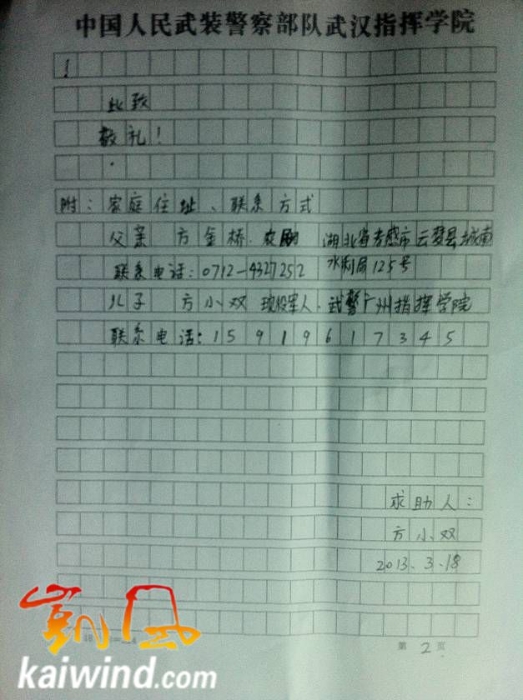 中国人民武装警察部队武汉指挥学院
!
此致
敬礼!
附:家庭住址、联系方式
父亲 方金桥. 湖北省孝感市云梦县城南
联系电话:0712-4327252 水利局125号
儿子 方小双 现役军人.武警广州指挥学院
联系电话:15919617345
求助人:
方小双
2013.3.18
凯风
kaiwind.com
第2页